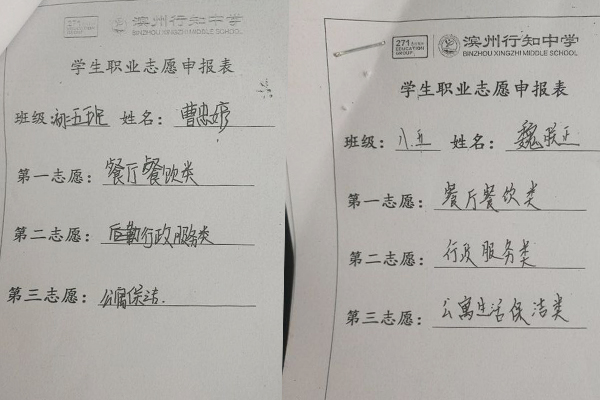 271 EDUCATION GROUP 滨州行知中学
BINZHOU XINGZHI MIDDLE SCHOOL
学生职业志愿申报表
班级 初五班 姓名：曹忠婷
第一志愿：餐厅餐饮类
第二志愿：后勤行政服务类
第三志愿：公寓保洁.
271 EDUCATION GROUP 滨州行知中学
BINZHOU XINGZHI MIDDLE SCHOOL
学生职业志愿申报表
班级：八.五 姓名：魏
第一志愿：餐厅餐饮类
第二志愿：行政服务类
第三志愿：公寓生活保洁类